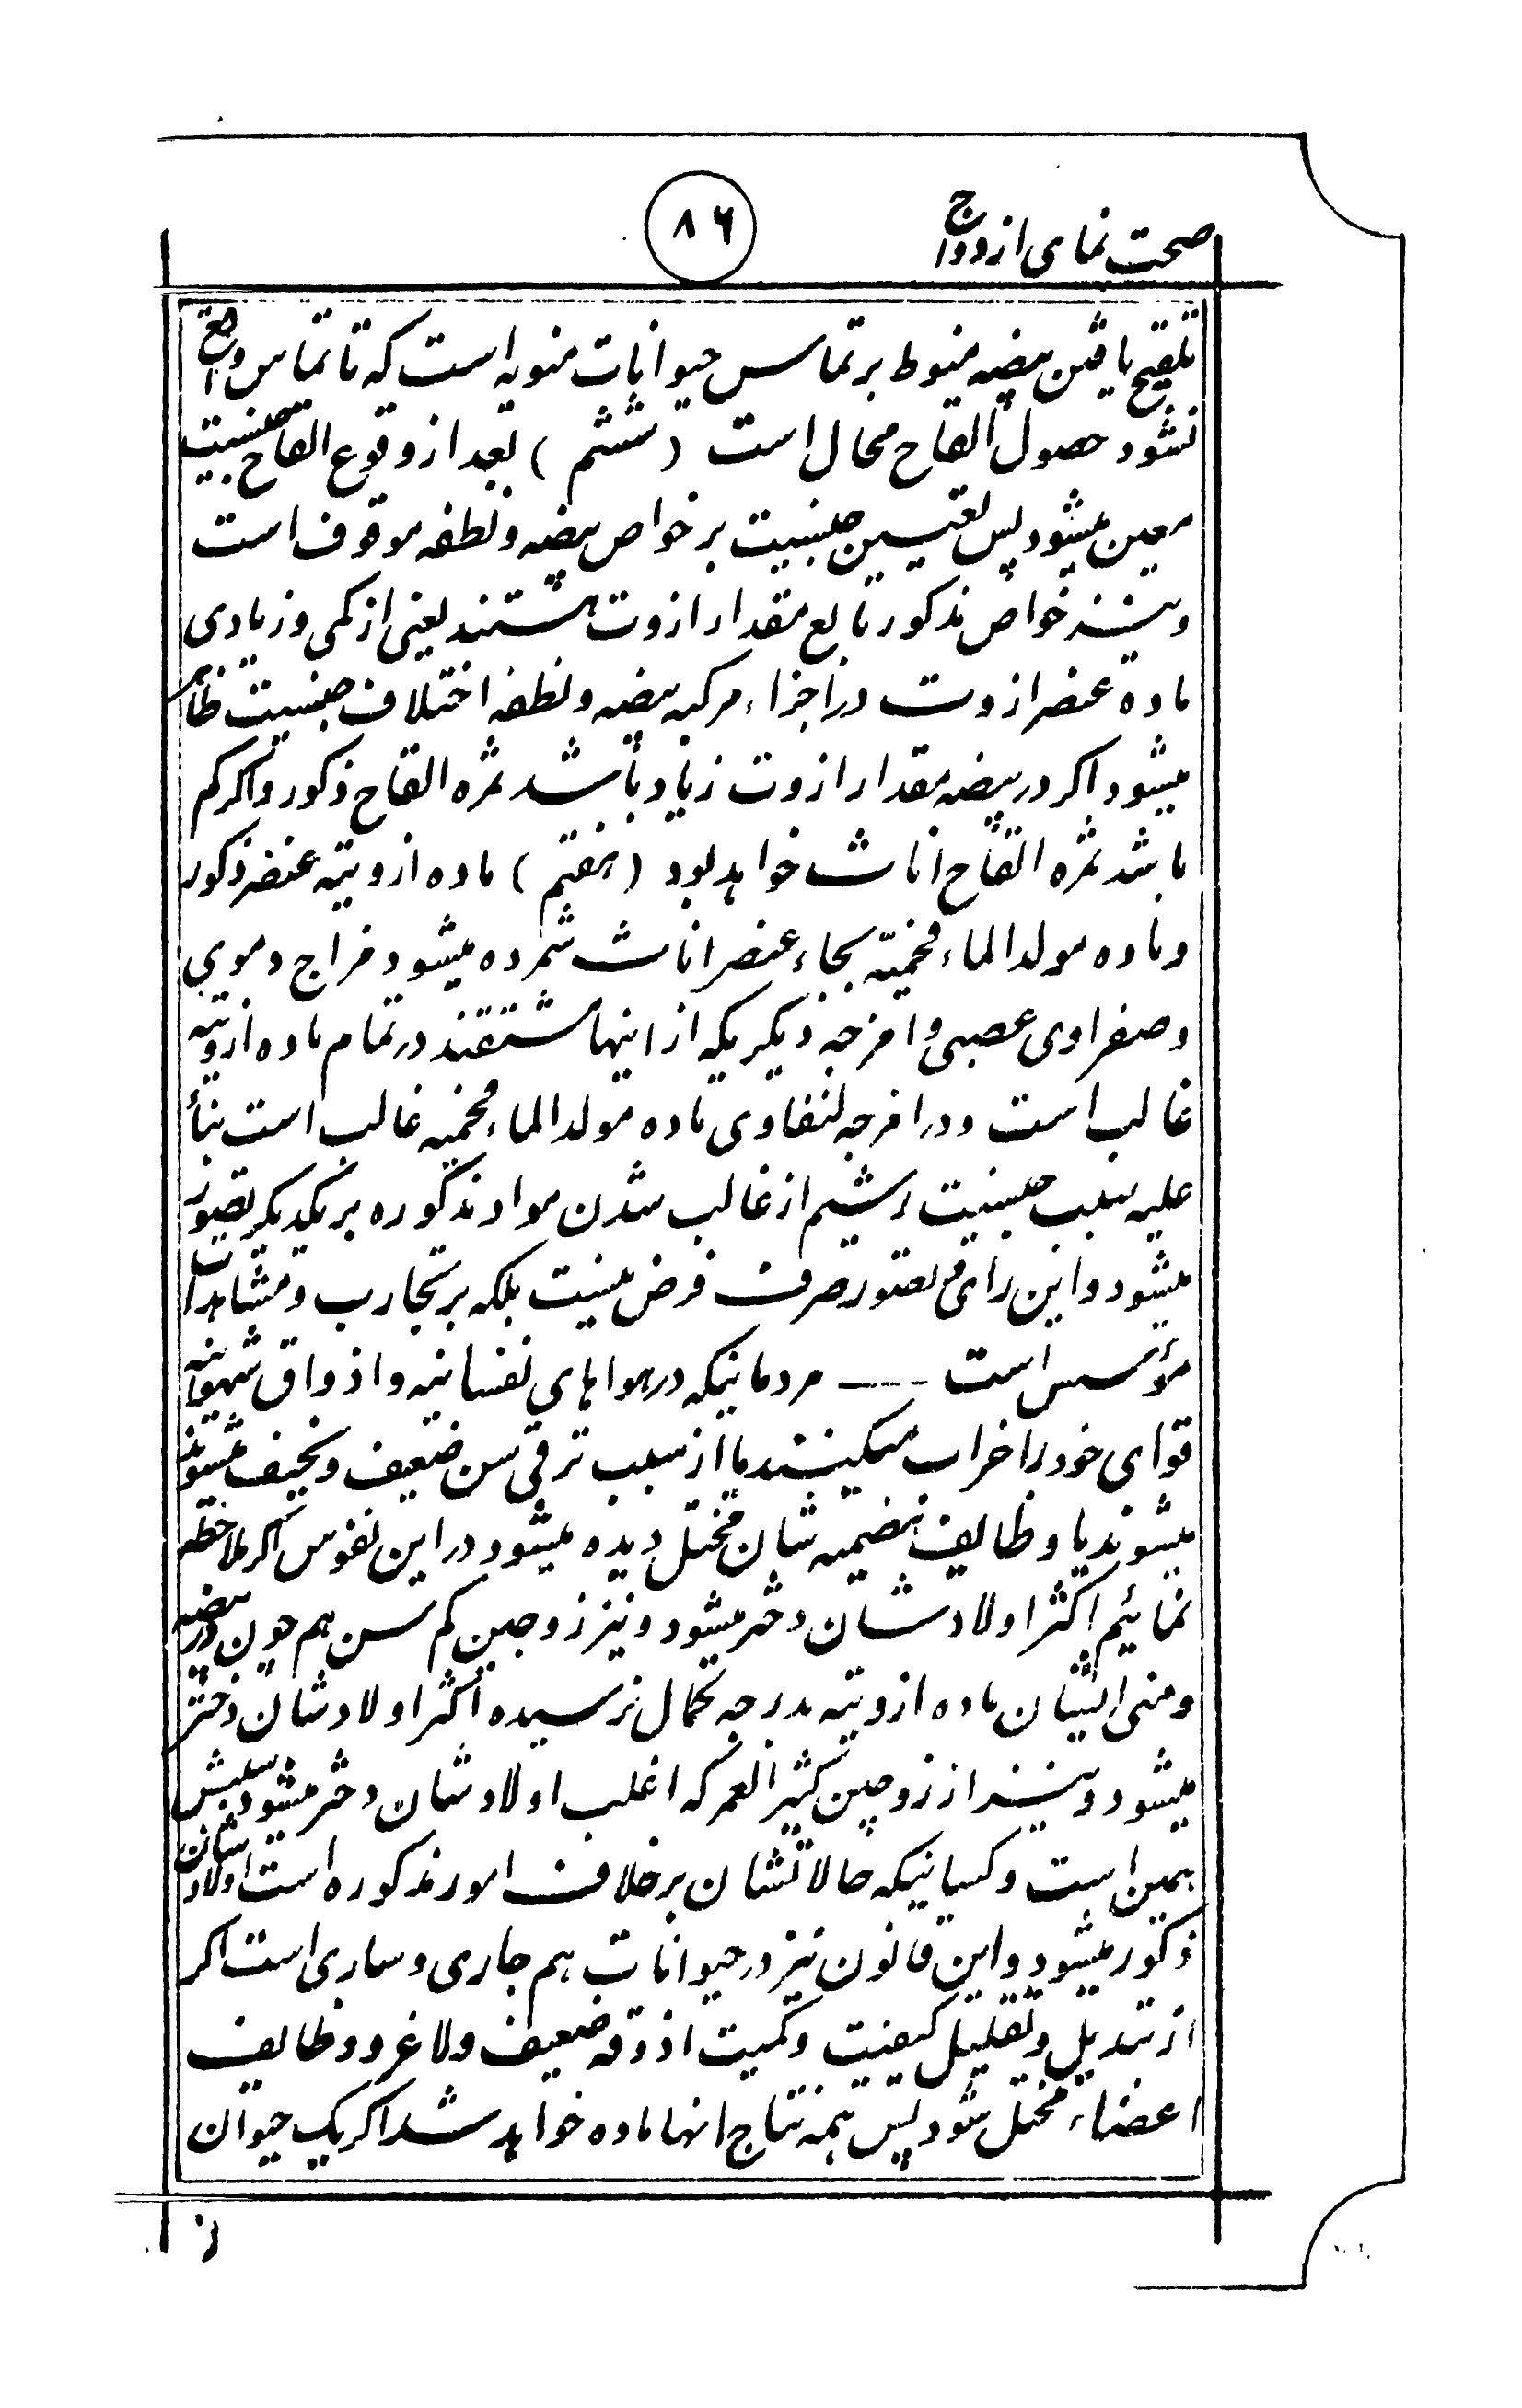 صحت نمای ازدواج
۸۶
تلقیح یافتن بیضه منوط بر تماس حیوانات منویه است که تا تماس واقع
نشود حصول القاح محال است (ششم) بعد از وقوع القاح جنسیت
معین میشود پس تعیین جنسیت بر خواص بیضه و نطفه موقوف است
ونیز خواص مذکور تابع مقدار ازوت هستند یعنی از کمی و زیادی
ماده عنصر ازوت در اجزاء مرکبه بیضه و نطفه اختلاف جنسیت ظاهر
میشود اکر در بیضه مقدار ازوت زیاد باشد ثمره القاح ذکور و اکر کم
باشد ثمره القاح اناث خواهد بود (هفتم) ماده ازوتیه عنصر ذکور
وماده مولد الماء فحمیّه بجاء عنصر اناث شمرده میشود مزاج دموی
و صفراوی عصبی و امزجه دیکریکه از اینها مشتقند در تمام ماده ازوتیه
غالب است ودر امزجه لنفاوی ماده مولد الماء فحمیه غالب است بنأ
علیه سبب جنسیت رشیم از غالب شدن مواد مذکوره بر یکدیکر تصور
میشود واین رای تصور صرف فرض نیست بلکه بر تجارب و مشاهدات
مؤسس است ---- مردمانیکه در هواهای نفسانیه و اذواق شهوانیه
قوای خود را خراب میکنند یا از سبب ترقی سن ضعیف و نحیف میشوند
میشوند یا وظایف هضمیه شان مختل دیده میشود در این نفوس اکر ملاحظه
نمائیم اکثر اولاد شان دختر میشود و نیز زوجین کم سن هم چون در بیضه
ومنی ایشان ماده ازوتیه بدرجه کمال نرسیده اکثر اولاد شان دختر
میشود ونیز از زوجین کثیر العمر که اغلب اولاد شان دختر میشود سببش
همین است و کسانیکه حالاتشان بر خلاف امور مذکوره است اولاد شان
ذکور میشود واین قانون نیز در حیوانات هم جاری و ساری است اکر
از تبدیل و تقلیل کیفیت و کمیت اذوقه ضعیف ولاغر و وظایف
اعضاء مختل شود پس همه نتاج انها ماده خواهد شد اکر یک حیوان